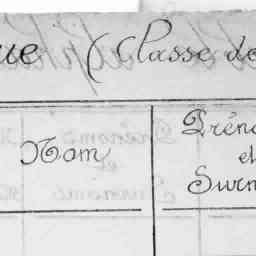 ue (Classe de
Nom
Préno
et
Surn